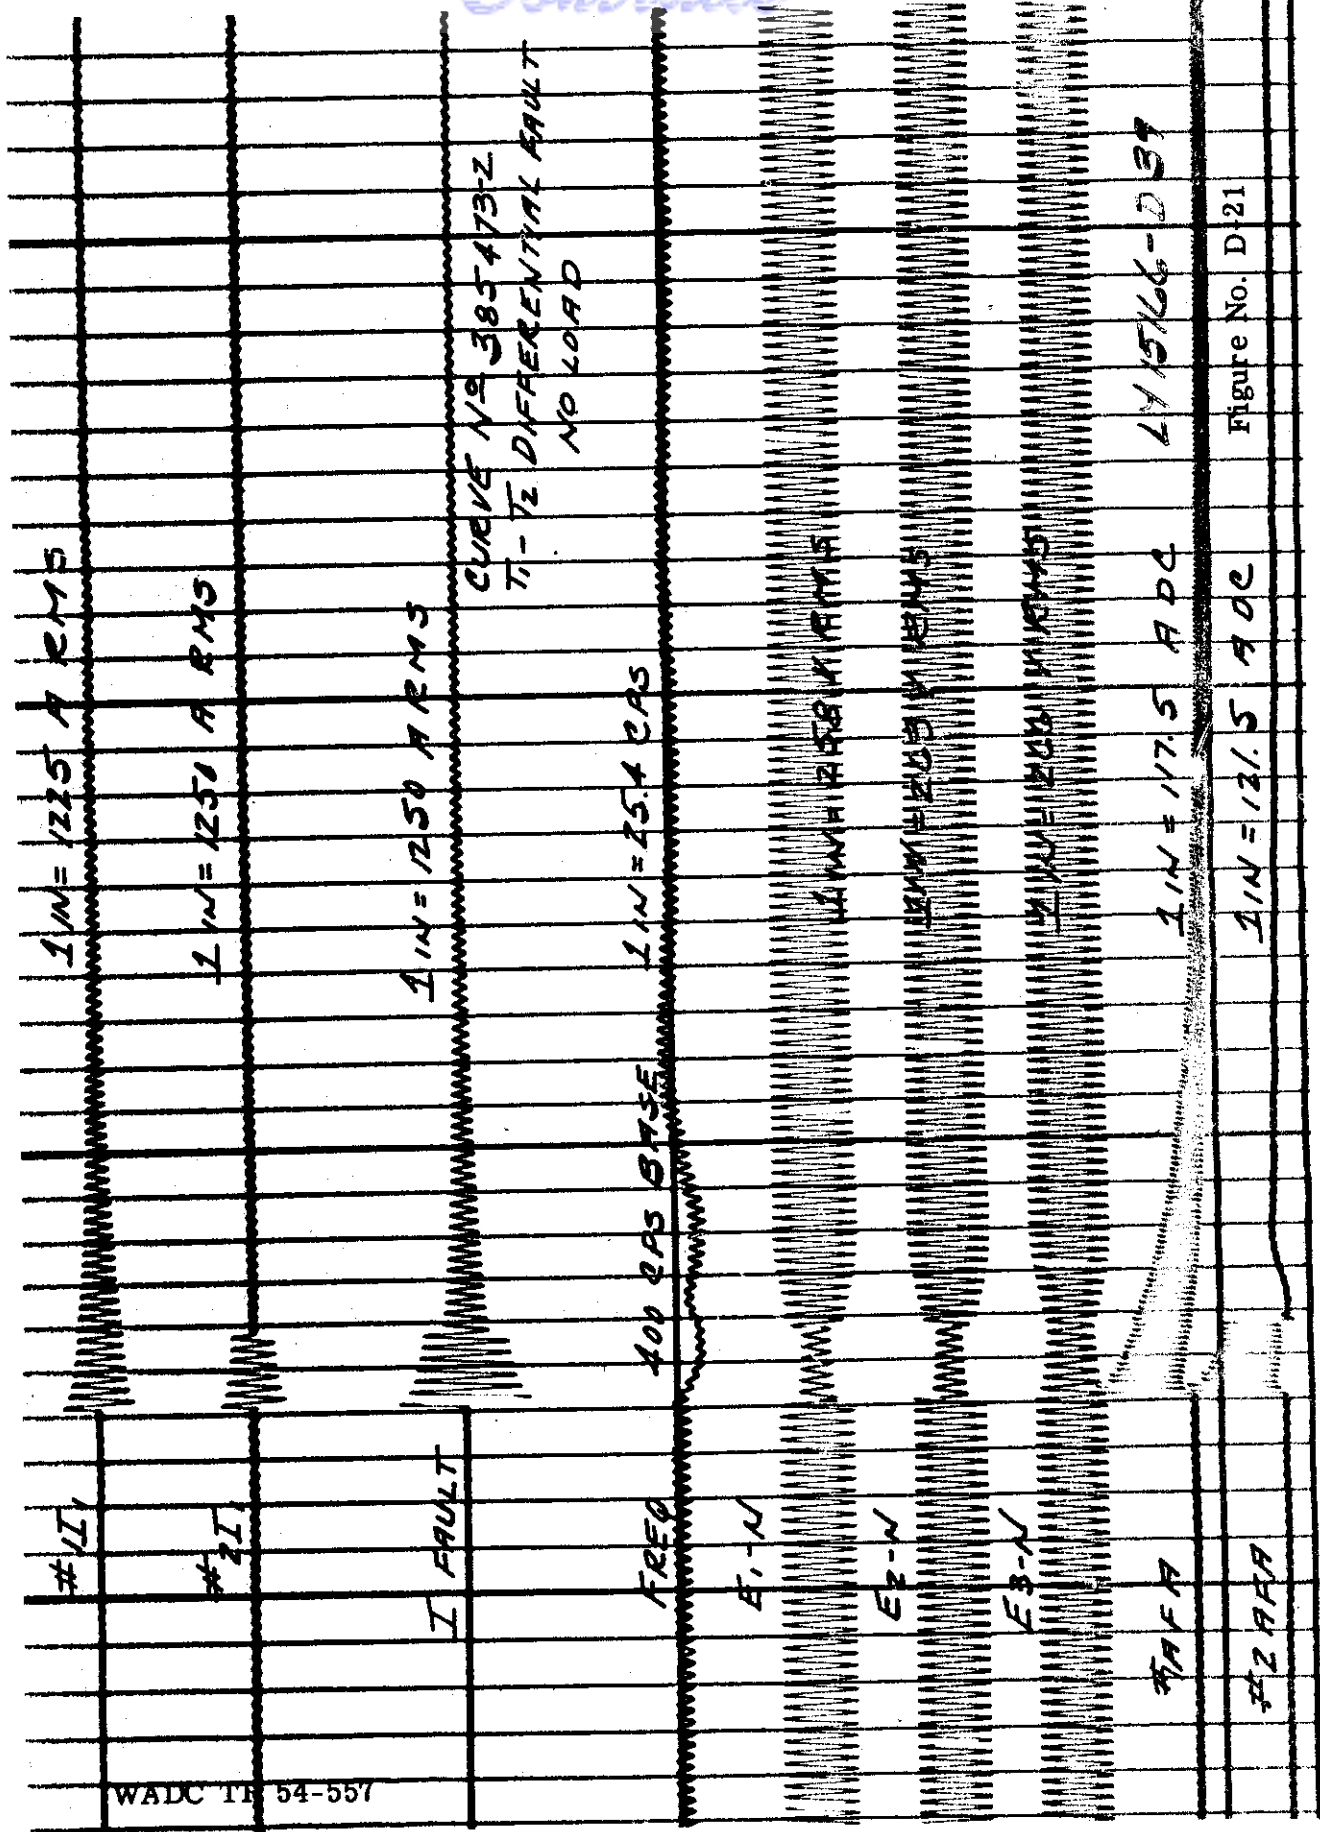 #1I1
1 IN = 1225 A RMS
#2I1
1 IN = 1250 A RMS
I FAULT
1 IN = 1250 A RMS
CURVE Nº 385473-2
T1 - T2 DIFFERENTIAL FAULT
NO LOAD
FREQ
400 CPS BASE
1 IN = 25.4 CPS
E1-N
1 IN = 258 V RMS
E2-N
1 IN = 263 V RMS
E3-N
1 IN = V RMS
AFA
1 IN = 117.5 A DC
#2 AFA
1 IN = 121.5 A DC
Figure No. D-21
WADC TR 54-557